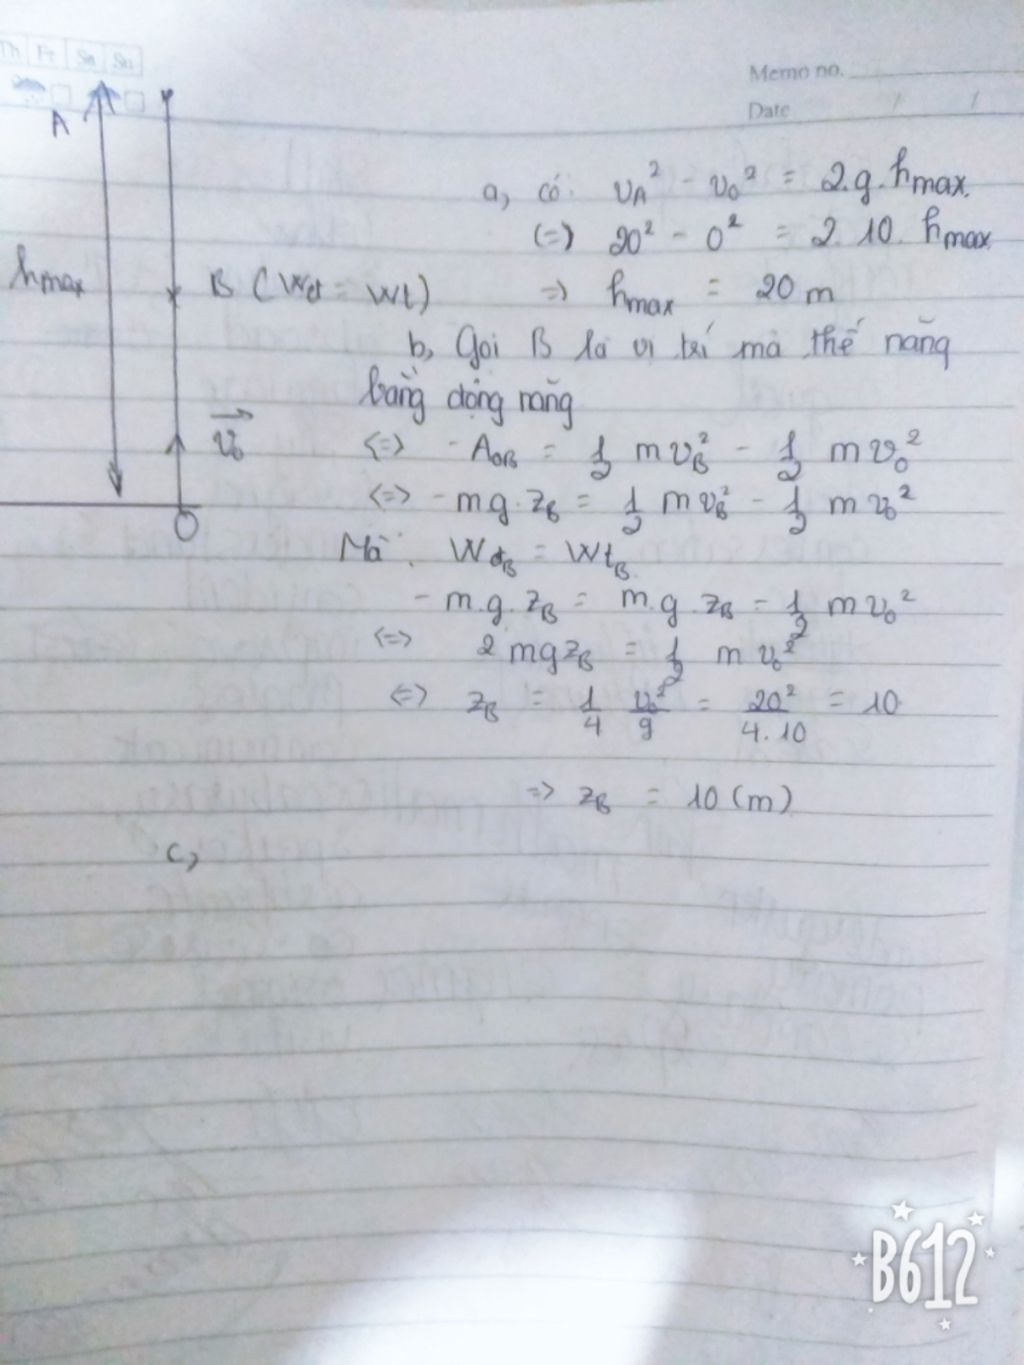 Th Fr Sa Su
Memo no.
Date / /
A
hmax
B (Wđ = Wt)
v₀
O
a, có: v_A² - v₀² = 2.g.hmax.
(=) 20² - 0² = 2.10. hmax
=> hmax = 20 m
b, Gọi B là vị trí mà thế năng
bằng động năng
<=> - A_OB = 1/2 m v_B² - 1/2 m v₀²
<=> - mg.z_B = 1/2 m v_B² - 1/2 m v₀²
Mà: Wđ_B = Wt_B.
- m.g.z_B = m.g.z_B - 1/2 m v₀²
<=> 2 mgz_B = 1/2 m v₀²
<=> z_B = 1/4 v₀²/g = 20²/4.10 = 10
=> z_B = 10 (m)
c,
B612